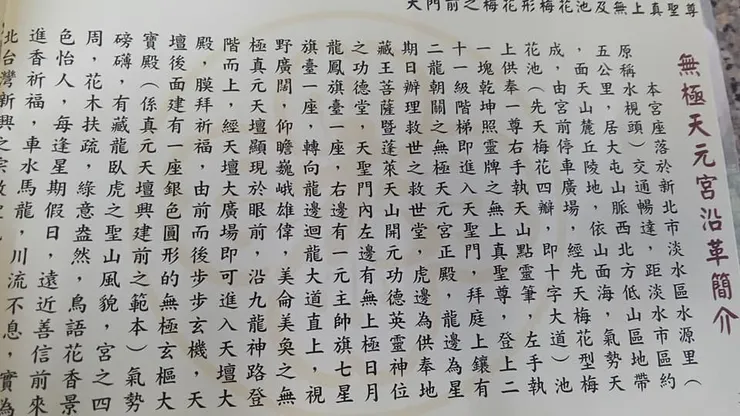 天門前之梅花形梅花池及無上真聖尊
無極天元宮沿革簡介
本宮座落於新北市淡水區水源里（
原稱水梘頭）交通暢達，距淡水市區約
五公里，居大屯山脈西北方低山區地帶
，面天山麓丘陵地，依山面海，氣勢天
成，由宮前停車廣場，經先天梅花型梅
花池（先天梅花四瓣，即十字大道）池
上供奉一尊右手執天山點靈筆，左手執
一塊乾坤照靈牌之無上真聖尊，登上二
十一級階梯即進入天聖門，拜庭上鑲有
二龍朝關之無極天元宮正殿，龍邊為星
期日辦理救世之救世堂，虎邊為供奉地
藏王菩薩暨蓬萊天山開元功德英靈神位
之功德堂，天聖門內左邊有無上極日月
龍鳳旗臺一座，右邊有一元主帥旗七星
旗臺一座，轉向龍邊迴龍大道直上，視
野廣闊，仰瞻巍峨雄偉，美侖美奐之無
極真元天壇顯現於眼前，沿九龍神路登
階而上，經天壇大廣場即可進入天壇大
殿，膜拜祈福，由前而後步步玄機　天
壇後面建有一座銀色圓形的無極玄樞大
寶殿（係真元天壇興建前之範本）氣勢
磅礡，有藏龍臥虎之聖山風貌，宮之四
周，花木扶疏，綠意盎然，鳥語花香景
色怡人，每逢星期假日，遠近善信前來
進香祈福，車水馬龍，川流不息，實為
北台灣新興之宗教